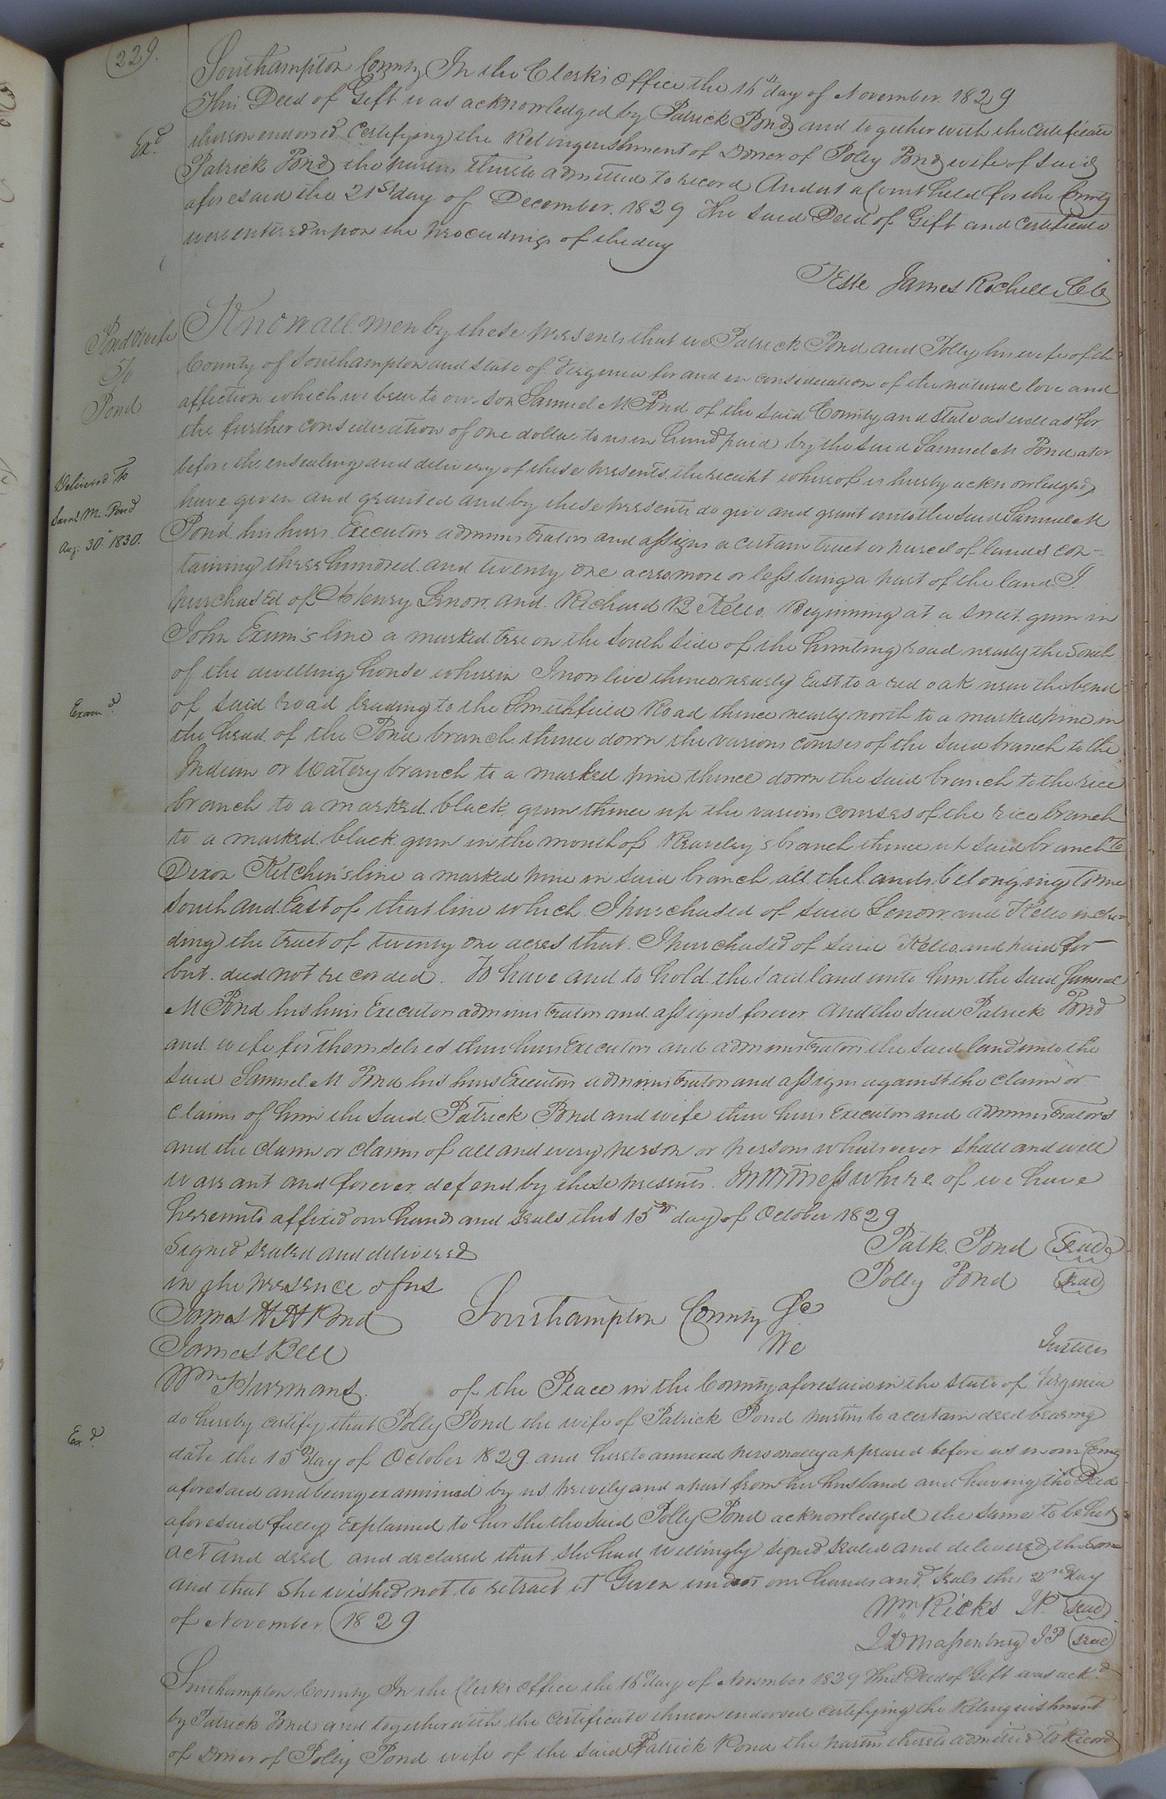 229.
Southampton County In the Clerks Office the 16th day of November 1829
This Deed of Gift was acknowledged by Patrick Pond and together with the certificate
Exd
thereon endorsed certifying the Relinquishment of Dower of Polly Pond wife of said
Patrick Pond the parties thereto admitted to record And at a Court held for the County
aforesaid the 21st day of December 1829 The said Deed of Gift and certificate
were entered upon the proceedings of the day
Teste James Rochelle CC
Pond & wife
To
Pond
Know all men by these presents that we Patrick Pond and Polly his wife of the
County of Southampton and state of Virginia for and in consideration of the natural love and
affection which we bear to our son Samuel M Pond of the said County and state as well as for
the further consideration of one dollar to us in hand paid by the said Samuel M Pond at or
Delivered to
Saml M. Pond
Aug. 30 1830.
before the ensealing and delivery of these presents the receipt whereof is hereby acknowledged
have given and granted and by these presents do give and grant unto the said Samuel M
Pond his heirs Executors administrators and assigns a certain tract or parcel of lands con-
taining three hundred and twenty one acres more or less being a part of the land I
purchased of Henry Lenow and Richard B Kello. Beginning at a sweet gum in
John Exum's line a marked tree on the South Side of the hunting road nearly the South
of the dwelling house wherein I now live thence nearly East to a red oak near the bend
Examd
of said road leading to the Smithfield Road thence nearly north to a marked pine in
the head of the Pond branch thence down the various courses of the said branch to the
Indian or Watery branch to a marked pine thence down the said branch to the rice
branch to a marked black gum thence up the various courses of the rice branch
to a marked black gum in the mouth of branch thence up said branch to
Dixon Kitchen's line a marked pine in said branch all the lands belonging to me
South and East of that line which I purchased of said Lenow and Kello inclu-
ding the tract of twenty one acres that I purchased of said Kello and paid for
but deed not recorded. To have and to hold the said land unto him the said Samuel
M Pond his heirs Executors administrators and assigns forever And the said Patrick Pond
and wife for themselves their heirs Executors and administrators the said land unto the
said Samuel M Pond his heirs Executors administrators and assigns against the claim or
claims of him the said Patrick Pond and wife their heirs Executors and administrators
and the claim or claims of all and every person or persons whatsoever shall and will
warrant and forever defend by these presents. In Witness where of we have
hereunto affixed our hands and seals this 15th day of October 1829
Signed sealed and delivered
in the presence of us
Patk Pond Seal
Polly Pond Seal
James H H Pond
James Bell
Wm Hurmans
Southampton County Sc
We Justices
of the Peace in the County aforesaid in the state of Virginia
do hereby certify that Polly Pond the wife of Patrick Pond parties to a certain deed bearing
Exd
date the 15th day of October 1829 and hereto annexed personally appeared before us in our County
aforesaid and being examined by us privily and apart from her husband and having the Deed
aforesaid fully explained to her she the said Polly Pond acknowledged the same to be her
act and deed and declared that she had willingly signed sealed and delivered the same
and that she wished not to retract it Given under our hands and seals this 2nd day
of November 1829
Wm Ricks JP Seal
Massenburg JP Seal
Southampton County In the Clerks Office the 16th day of November 1829 This Deed of Gift was ackd
by Patrick Pond and together with the certificate thereon endorsed certifying the Relinquishment
of Dower of Polly Pond wife of the said Patrick Pond the parties thereto admitted to Record